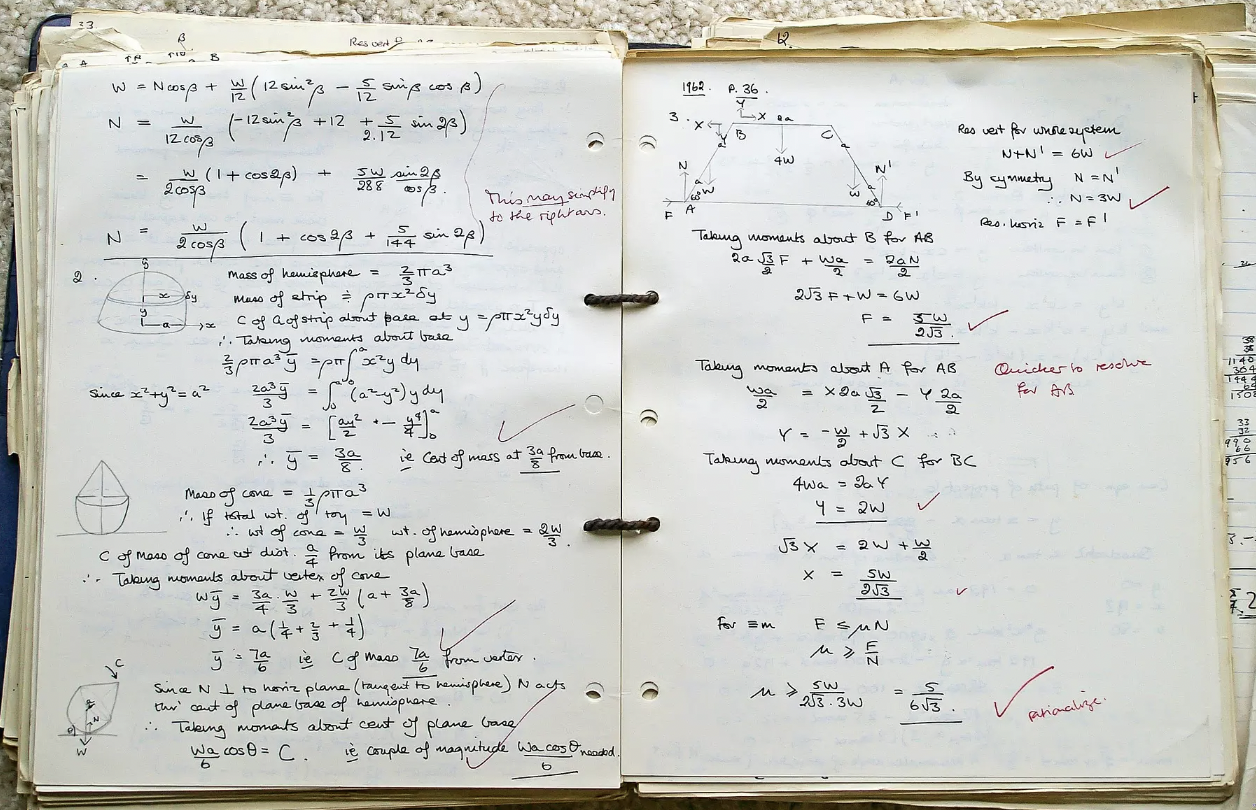 33
β
Res vert
A
B
W = Ncosβ + W/12 (12sin²β − 5/12 sinβ cosβ)
N = W/12cosβ (−12sin²β + 12 + 5/2.12 sin2β)
= W/2cosβ (1 + cos2β) + 5W/288 sin2β/cosβ.
This may simplify
to the right ans.
N = W/2cosβ (1 + cos2β + 5/144 sin2β)
2.
y
x
δy
y
a
x
Mass of hemisphere = 2/3 πa³
Mass of strip ≑ ρπx²δy
C of G of strip about base at y = ρπx²yδy
∴ Taking moments about base
2/3 ρπa³ȳ = ρπ∫₀ᵃ x²y dy
Since x²+y²=a² 2a³ȳ/3 = ∫₀ᵃ (a²−y²) y dy
2a³ȳ/3 = [ay²/2 − y⁴/4]₀ᵃ
∴ ȳ = 3a/8. ie Cent of mass at 3a/8 from base.
Mass of cone = 1/3 ρπa³
∴ if total wt. of toy = W
∴ wt of cone = W/3 wt. of hemisphere = 2W/3.
C of Mass of cone at dist. a/4 from its plane base
∴ Taking moments about vertex of cone
Wȳ = 3a/4 . W/3 + 2W/3 (a + 3a/8)
ȳ = a(1/4 + 2/3 + 1/4)
ȳ = 7a/6 ie C of Mass 7a/6 from vertex.
C
N
θ
W
Since N ⊥ to horiz plane (tangent to hemisphere) N acts
thro' cent of plane base of hemisphere.
∴ Taking moments about cent of plane base
Wa/6 cosθ = C ie couple of magnitude Wa cosθ/6 needed.
12.
1962. P.36
3.
Y
X
X
Y
B
2a
C
a
a
4W
N
W
W
N'
a
60°
60°
F
A
D
F'
Res vert for whole system
N+N' = 6W
By symmetry N = N'
∴ N = 3W
Res. horiz F = F'
Taking moments about B for AB
2a √3/2 F + Wa/2 = 2aN/2
2√3 F + W = 6W
F = 5W/2√3.
Taking moments about A for AB
Quicker to resolve
for AB
Wa/2 = X 2a √3/2 − Y 2a/2
Y = −W/2 + √3 X
Taking moments about C for BC
4Wa = 2aY
Y = 2W
√3 X = 2W + W/2
X = 5W/2√3
For ≡m F ≤ μN
μ ≥ F/N
μ ≥ 5W/2√3.3W = 5/6√3.
rationalize.
38
1140
304
1444
64
1508
33
32
990
66
956